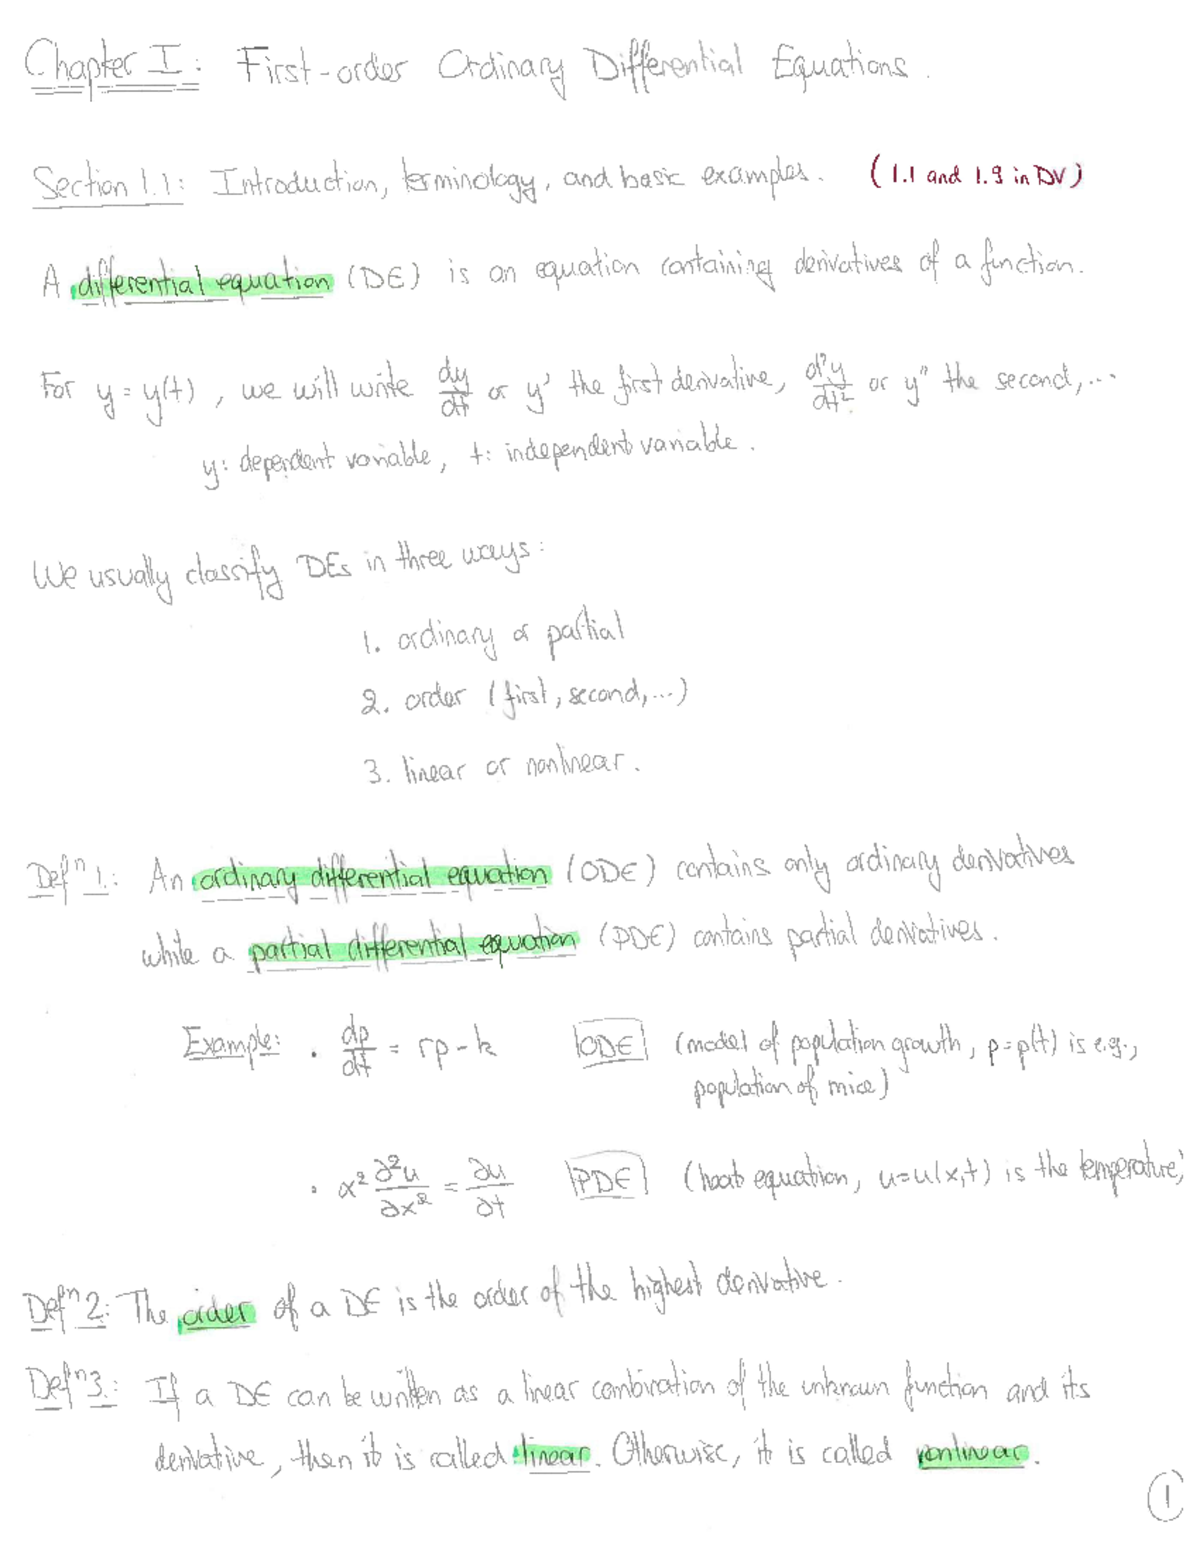 Chapter I: First-order Ordinary Differential Equations.
Section 1.1: Introduction, terminology, and basic examples. (1.1 and 1.9 in DV)
A differential equation (DE) is an equation containing derivatives of a function.
For y = y(t), we will write dy/dt or y' the first derivative, d²y/dt² or y" the second,...
y: dependent variable, t: independent variable.
We usually classify DEs in three ways:
1. ordinary or partial
2. order (first, second,...)
3. linear or nonlinear.
Defⁿ 1: An ordinary differential equation (ODE) contains only ordinary derivatives
while a partial differential equation (PDE) contains partial derivatives.
Example: • dp/dt = rp - k ODE (model of population growth, p=p(t) is e.g.,
population of mice)
• α² ∂²u/∂x² = ∂u/∂t PDE (heat equation, u=u(x,t) is the temperature)
Defⁿ 2: The order of a DE is the order of the highest derivative.
Defⁿ 3: If a DE can be written as a linear combination of the unknown function and its
derivative, then it is called linear. Otherwise, it is called nonlinear.
1